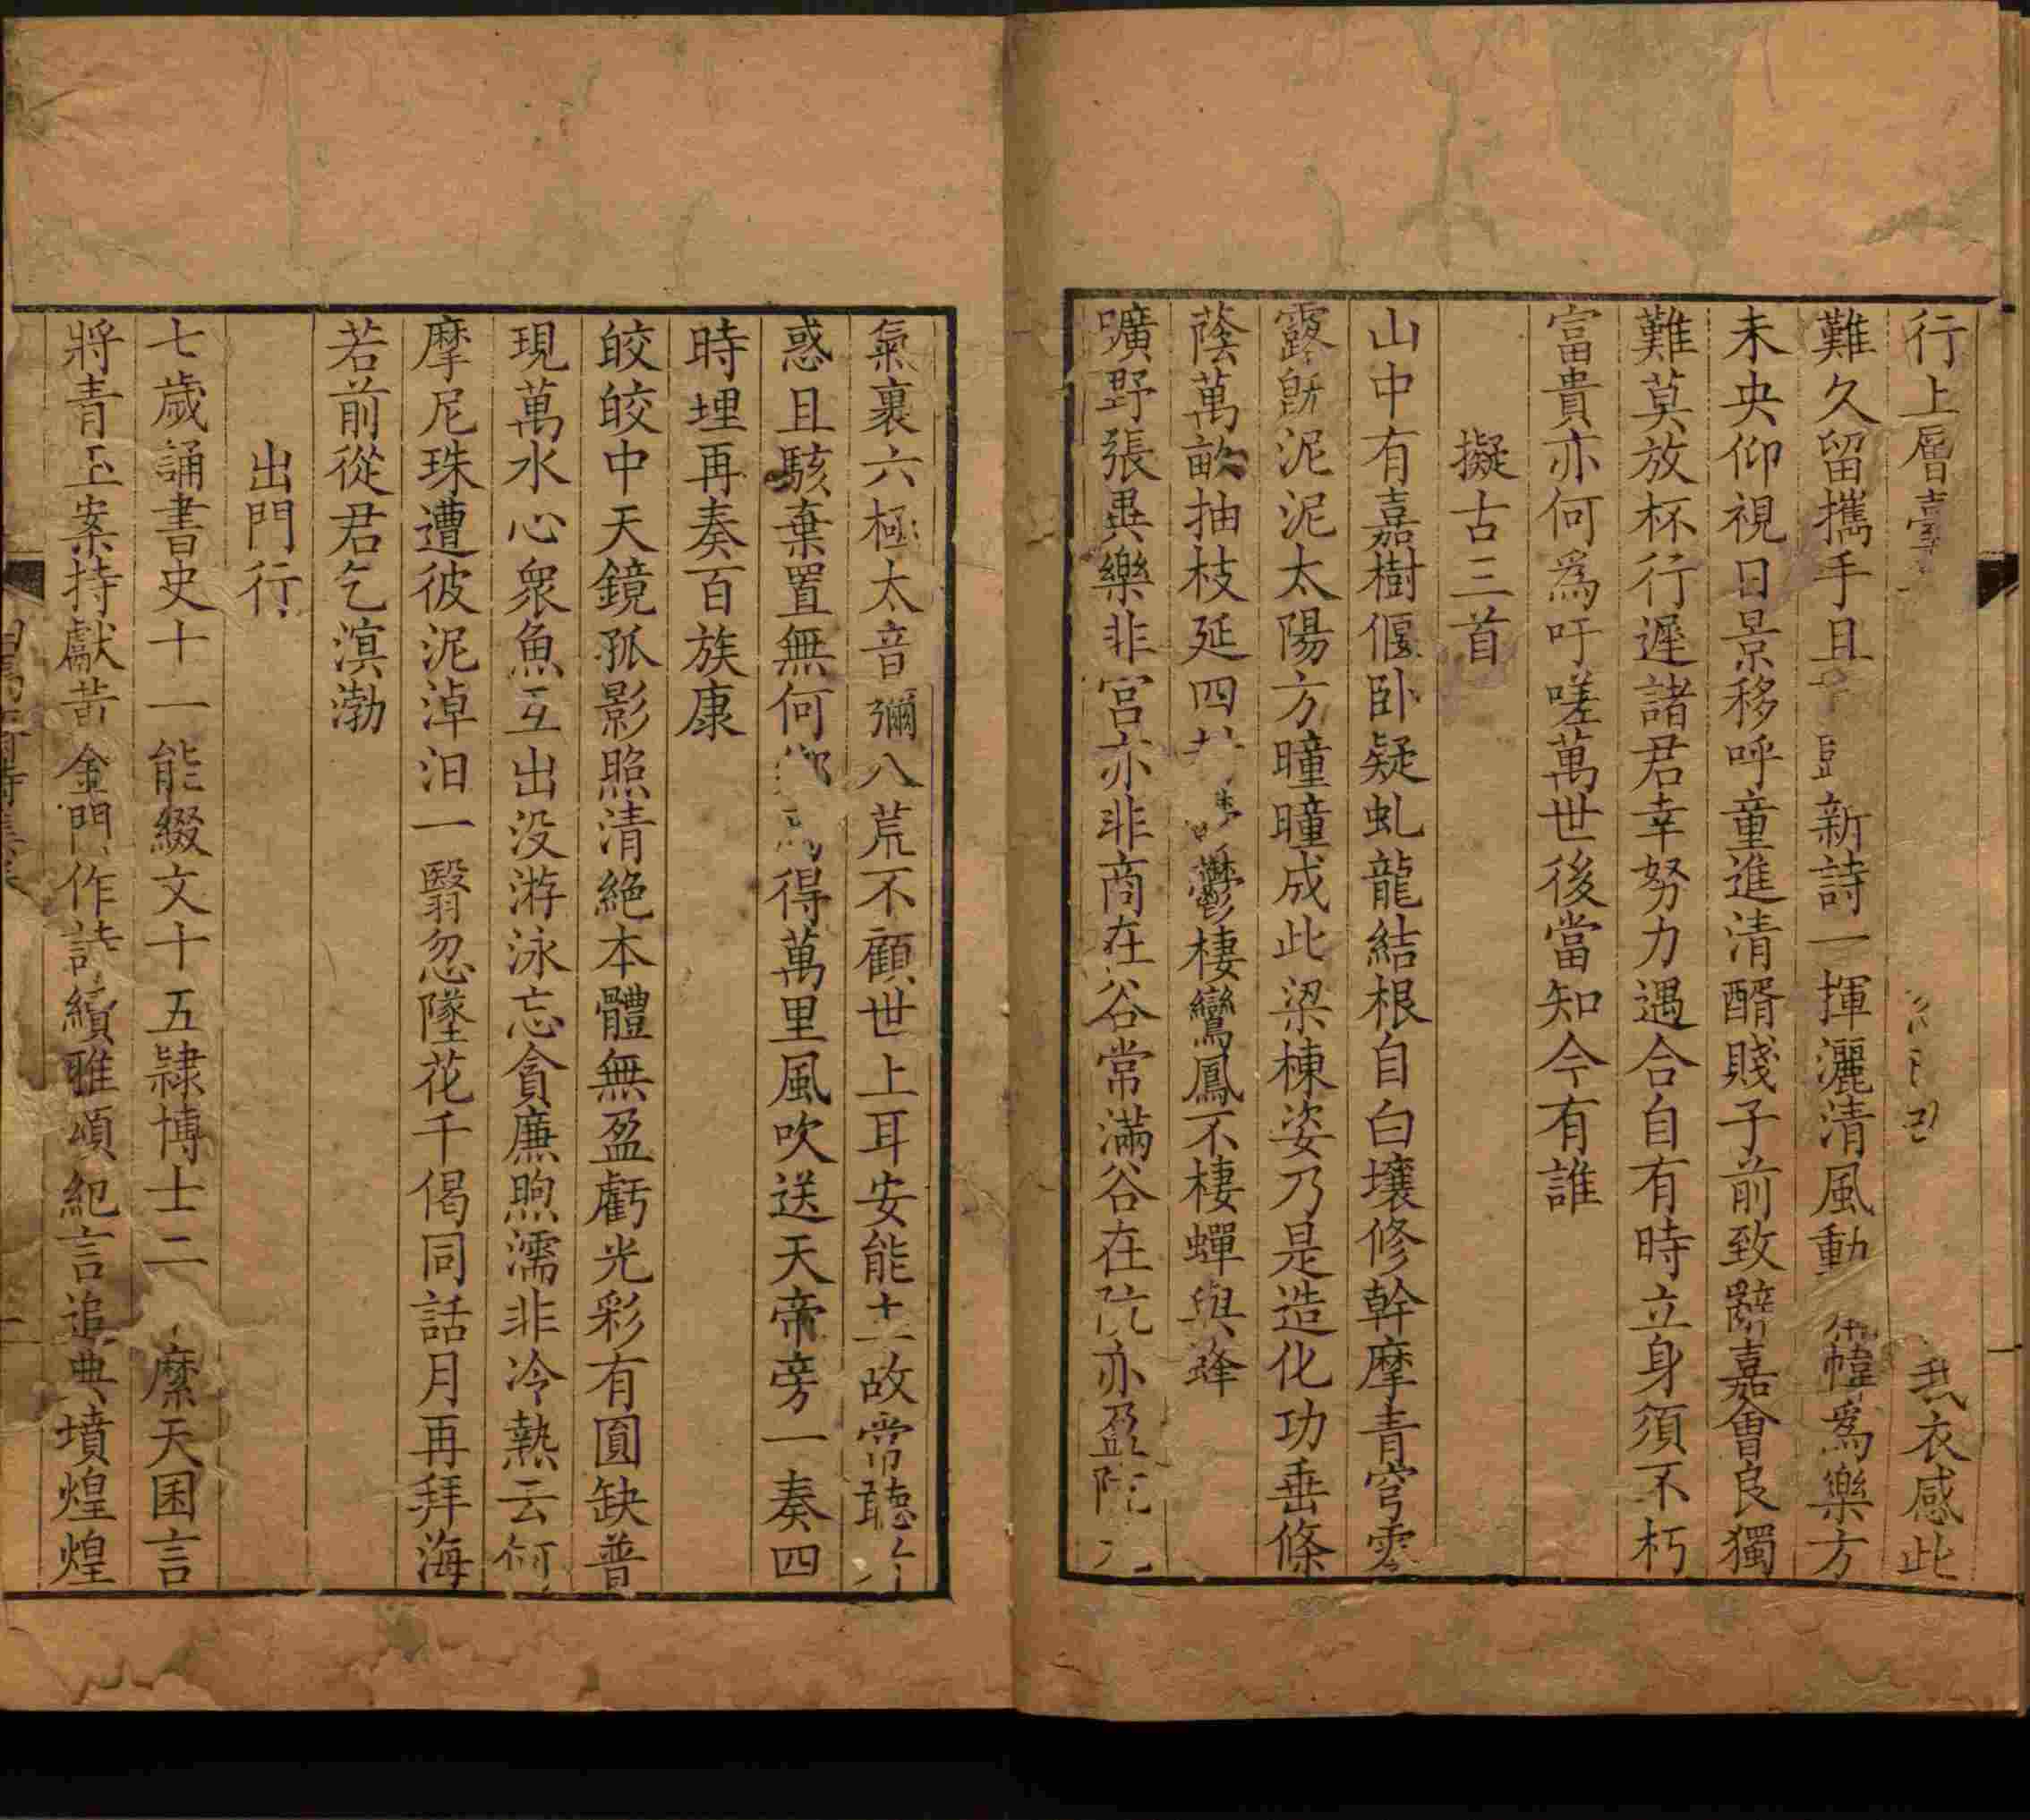 行上層臺衣感此
難久留攜手且新詩一揮灑清風動幃為樂方
未央仰視日景移呼童進清醑賤子前致辭嘉會良獨
難莫放杯行遲諸君幸努力遇合自有時立身須不朽
富貴亦何爲吁嗟萬世後當知今有誰
擬古三首
山中有嘉樹偃卧疑虬龍結根自白壤修幹摩青穹雲
露旣泥泥太陽方曈曈成此梁棟姿乃是造化功垂條
蔭萬畝抽枝延四鬱棲鸞鳳不棲蟬與蜂
曠野張異樂非宫亦非商在谷常滿谷在阬亦盈阬
氣裏六極太音彌八荒不顧世上耳安能士故常聽
惑且駭棄置無何鄉得萬里風吹送天帝旁一奏四
時埋再奏百族康
皎皎中天鏡孤影照清絶本體無盈虧光彩有圓缺普
現萬水心衆魚互出没游泳忘貪廉煦濡非冷熱云何
摩尼珠遭彼泥淖汨一翳忽墜花千偈同話月再拜海
若前從君乞溟渤
出門行
七歲誦書史十一能綴文十五隷博士二縻天囷言
將青玉案持獻黄金門作詩續雅頌紀言追典墳煌煌